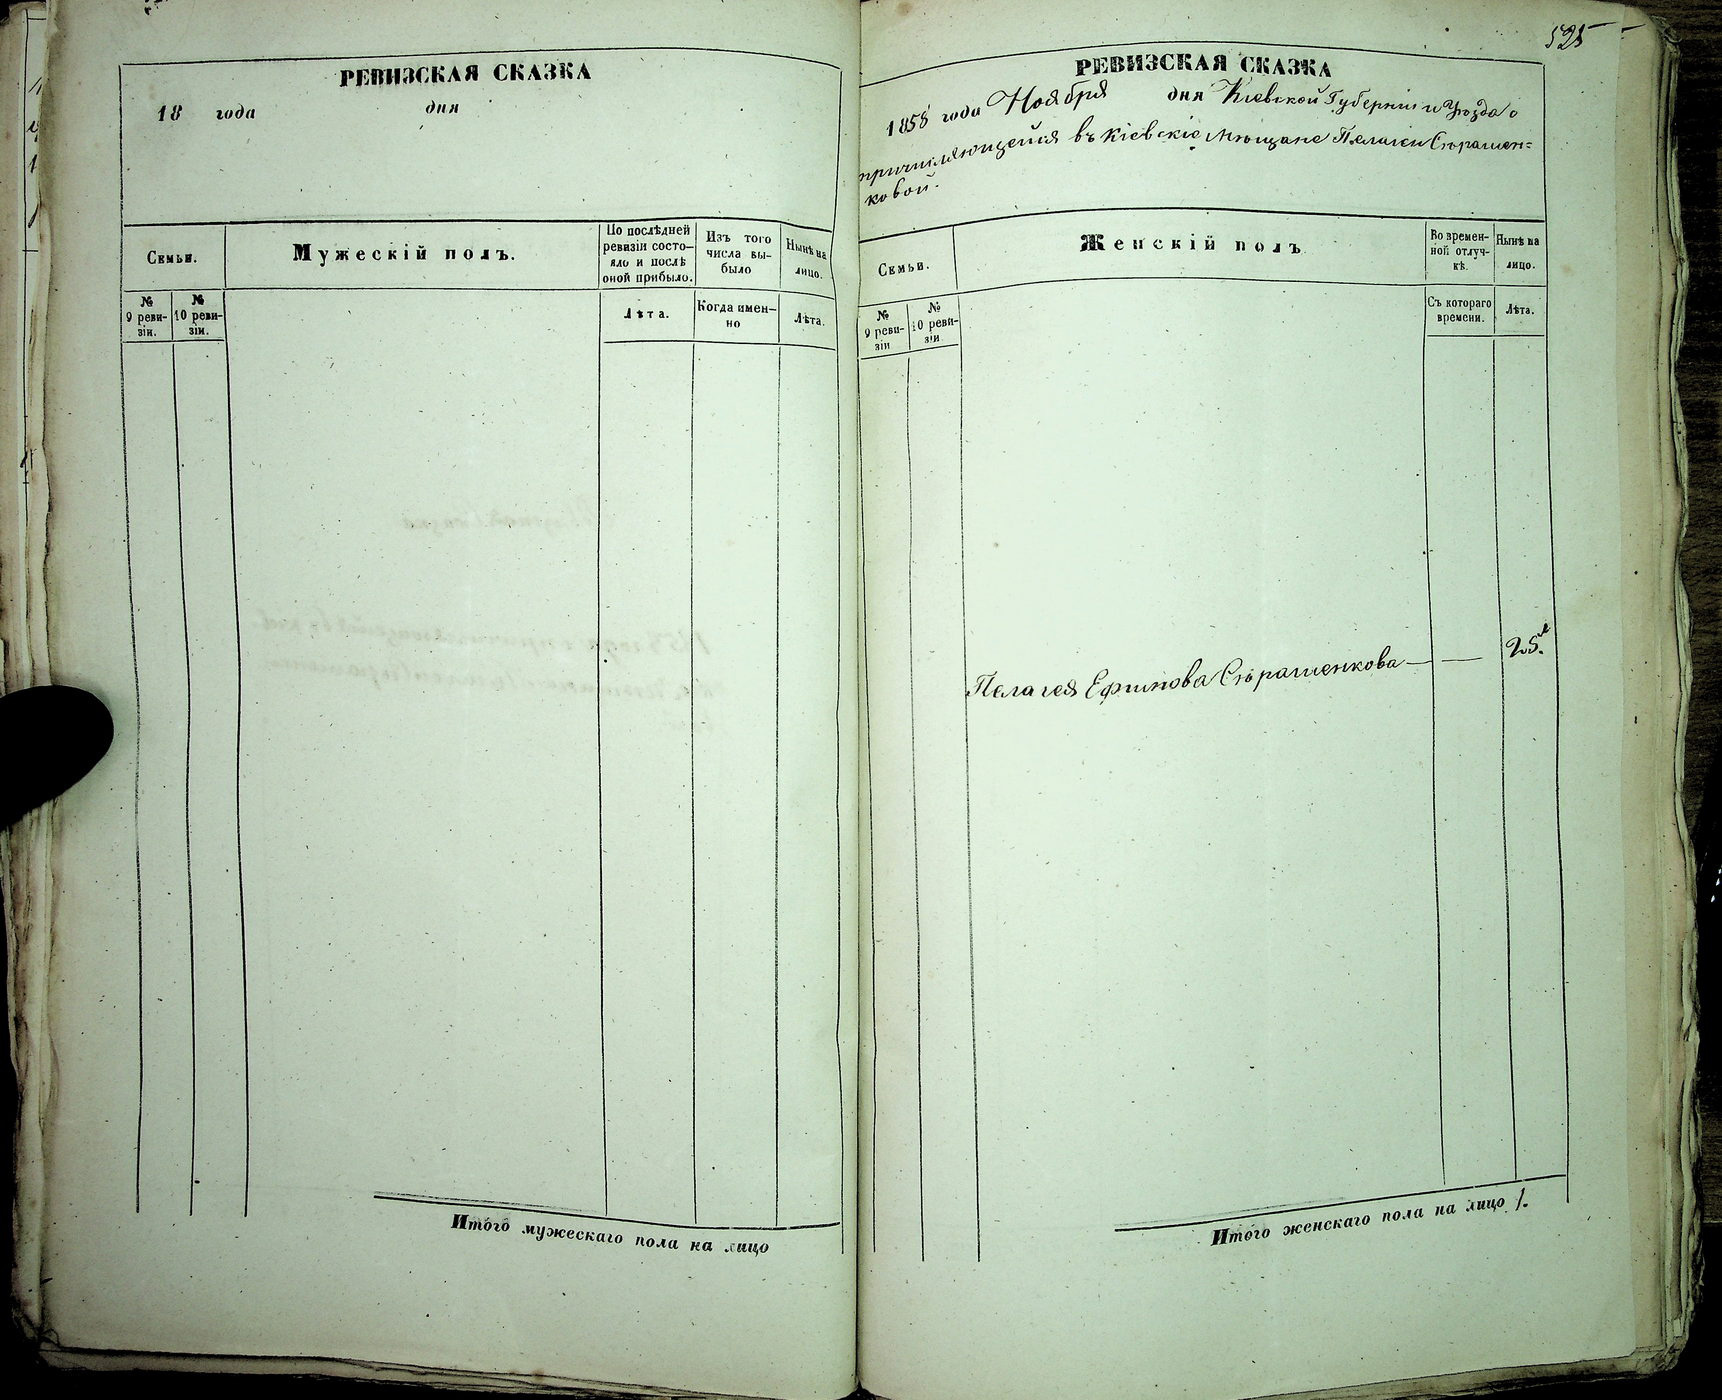 РЕВИЗСКАЯ СКАЗКА
18 года дня
Семьи.
Мужескій полъ.
По послѣдней
ревизіи состо-
яло и послѣ
оной прибыло.
Изъ того
числа вы-
было
Нынѣ на
лицо.
№
9 реви-
зіи.
№
10 реви-
зіи.
Лѣта.
Когда имен-
но
Лѣта.
Итого мужескаго пола на лицо
525
РЕВИЗСКАЯ СКАЗКА
1858 года Ноября дня Кіевской Губерніи и Уѣзда о
причисляющейся въ Кіевскіе Мѣщане Пелагеи Сѣрашен=
ковой.
Семьи.
Женскій полъ
Во времен-
ной отлуч-
кѣ.
Нынѣ на
лицо.
№
9 реви-
зіи
№
10 реви-
зіи
Съ котораго
времени.
Лѣта.
Пелагея Ефимова Сѣрашенкова — — 25.
Итого женскаго пола на лицо 1.